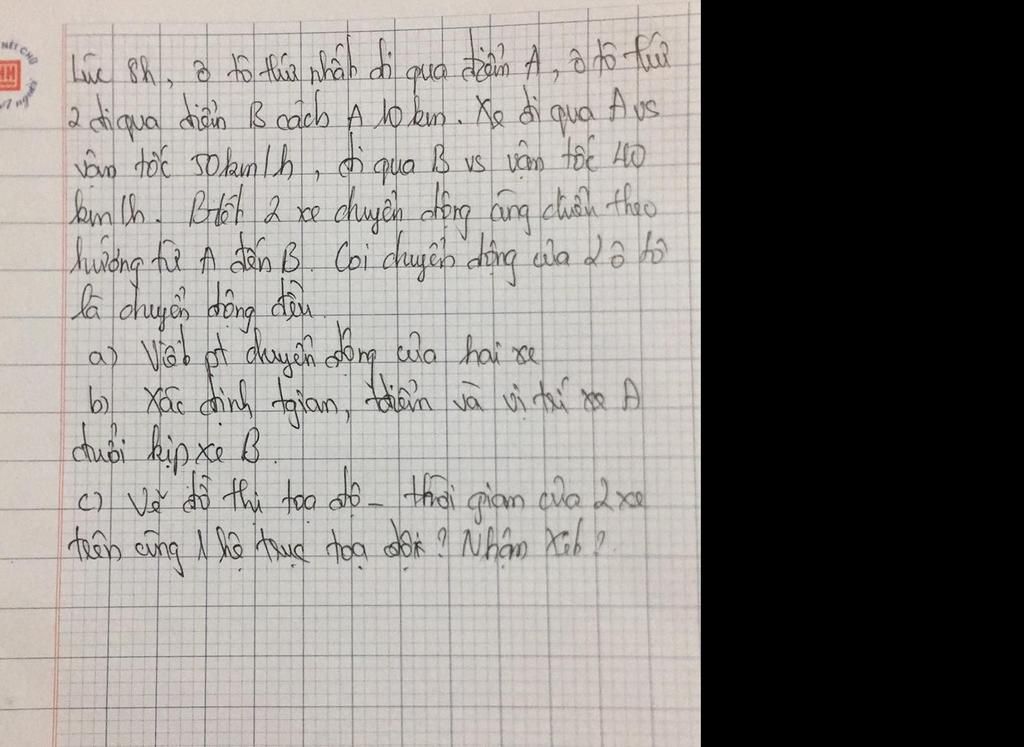 NÉT CHỮ
Lúc 8h, ô tô thứ nhất đi qua điểm A, ô tô thứ
2 đi qua điểm B cách A 10 km. Xe đi qua A vs
vận tốc 50km/h, đi qua B vs vận tốc 40
km/h. Biết 2 xe chuyển động cùng chiều theo
hướng từ A đến B. Coi chuyển động của 2 ô tô
là chuyển động đều.
a) Viết pt chuyển động của hai xe
b) Xác định tgian, điểm và vị trí xe A
đuổi kịp xe B.
c) Vẽ đồ thị toạ độ - thời gian của 2 xe
trên cùng 1 hệ trục toạ độ? Nhận xét?